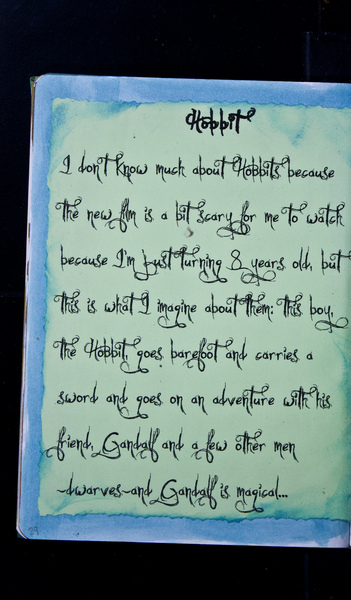 Hobbit
I don't know much about Hobbits because
the new film is a bit scary for me to watch
because I'm just turning 8 years old, but
this is what I imagine about them: this boy,
the Hobbit, goes barefoot and carries a
sword and goes on an adventure with his
friend, Gandalf and a few other men
~dwarves~and Gandalf is magical...
29